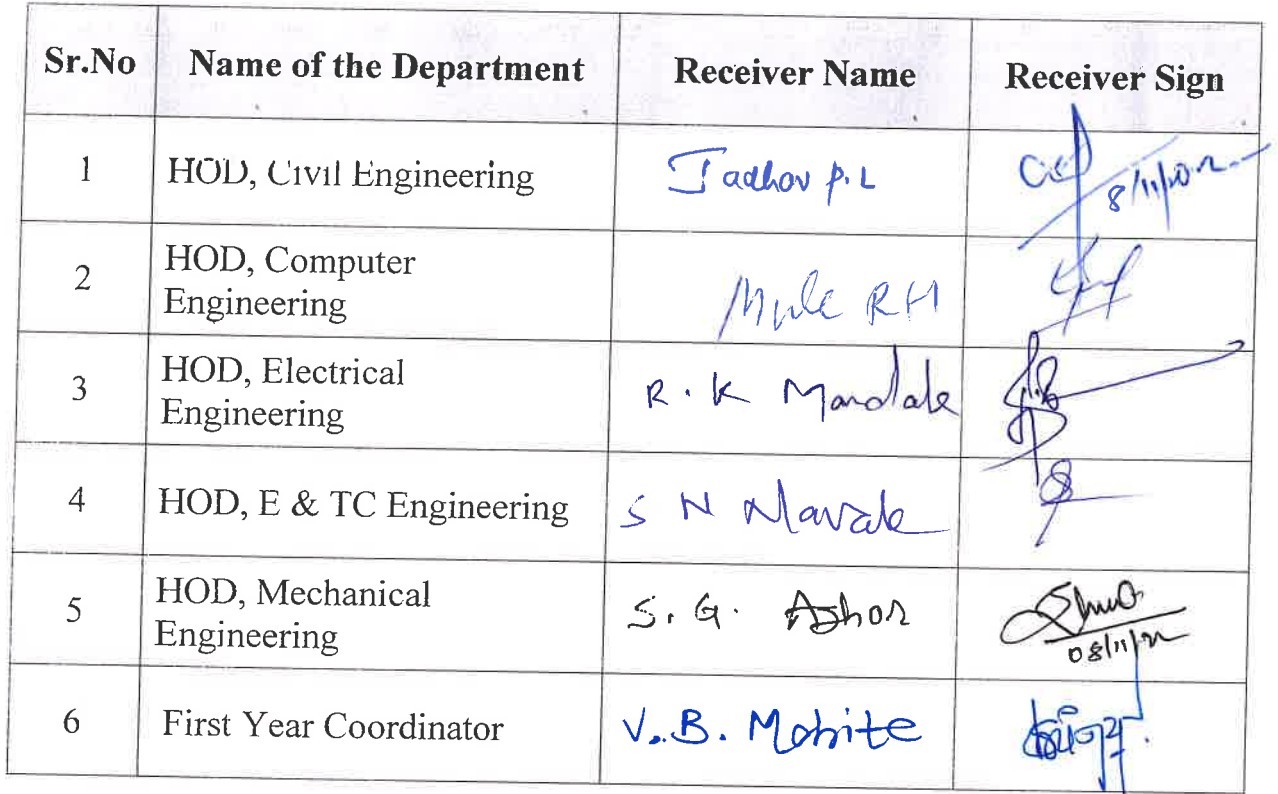 Sr.No Name of the Department Receiver Name Receiver Sign
1 HOD, Civil Engineering Jadhav P.L 8/11/2022
2 HOD, Computer Mule RH
Engineering
3 HOD, Electrical R.K Mandale
Engineering
4 HOD, E & TC Engineering S N Navale
5 HOD, Mechanical S.G. Ashor
Engineering 08/11/22
6 First Year Coordinator V.B. Mohite